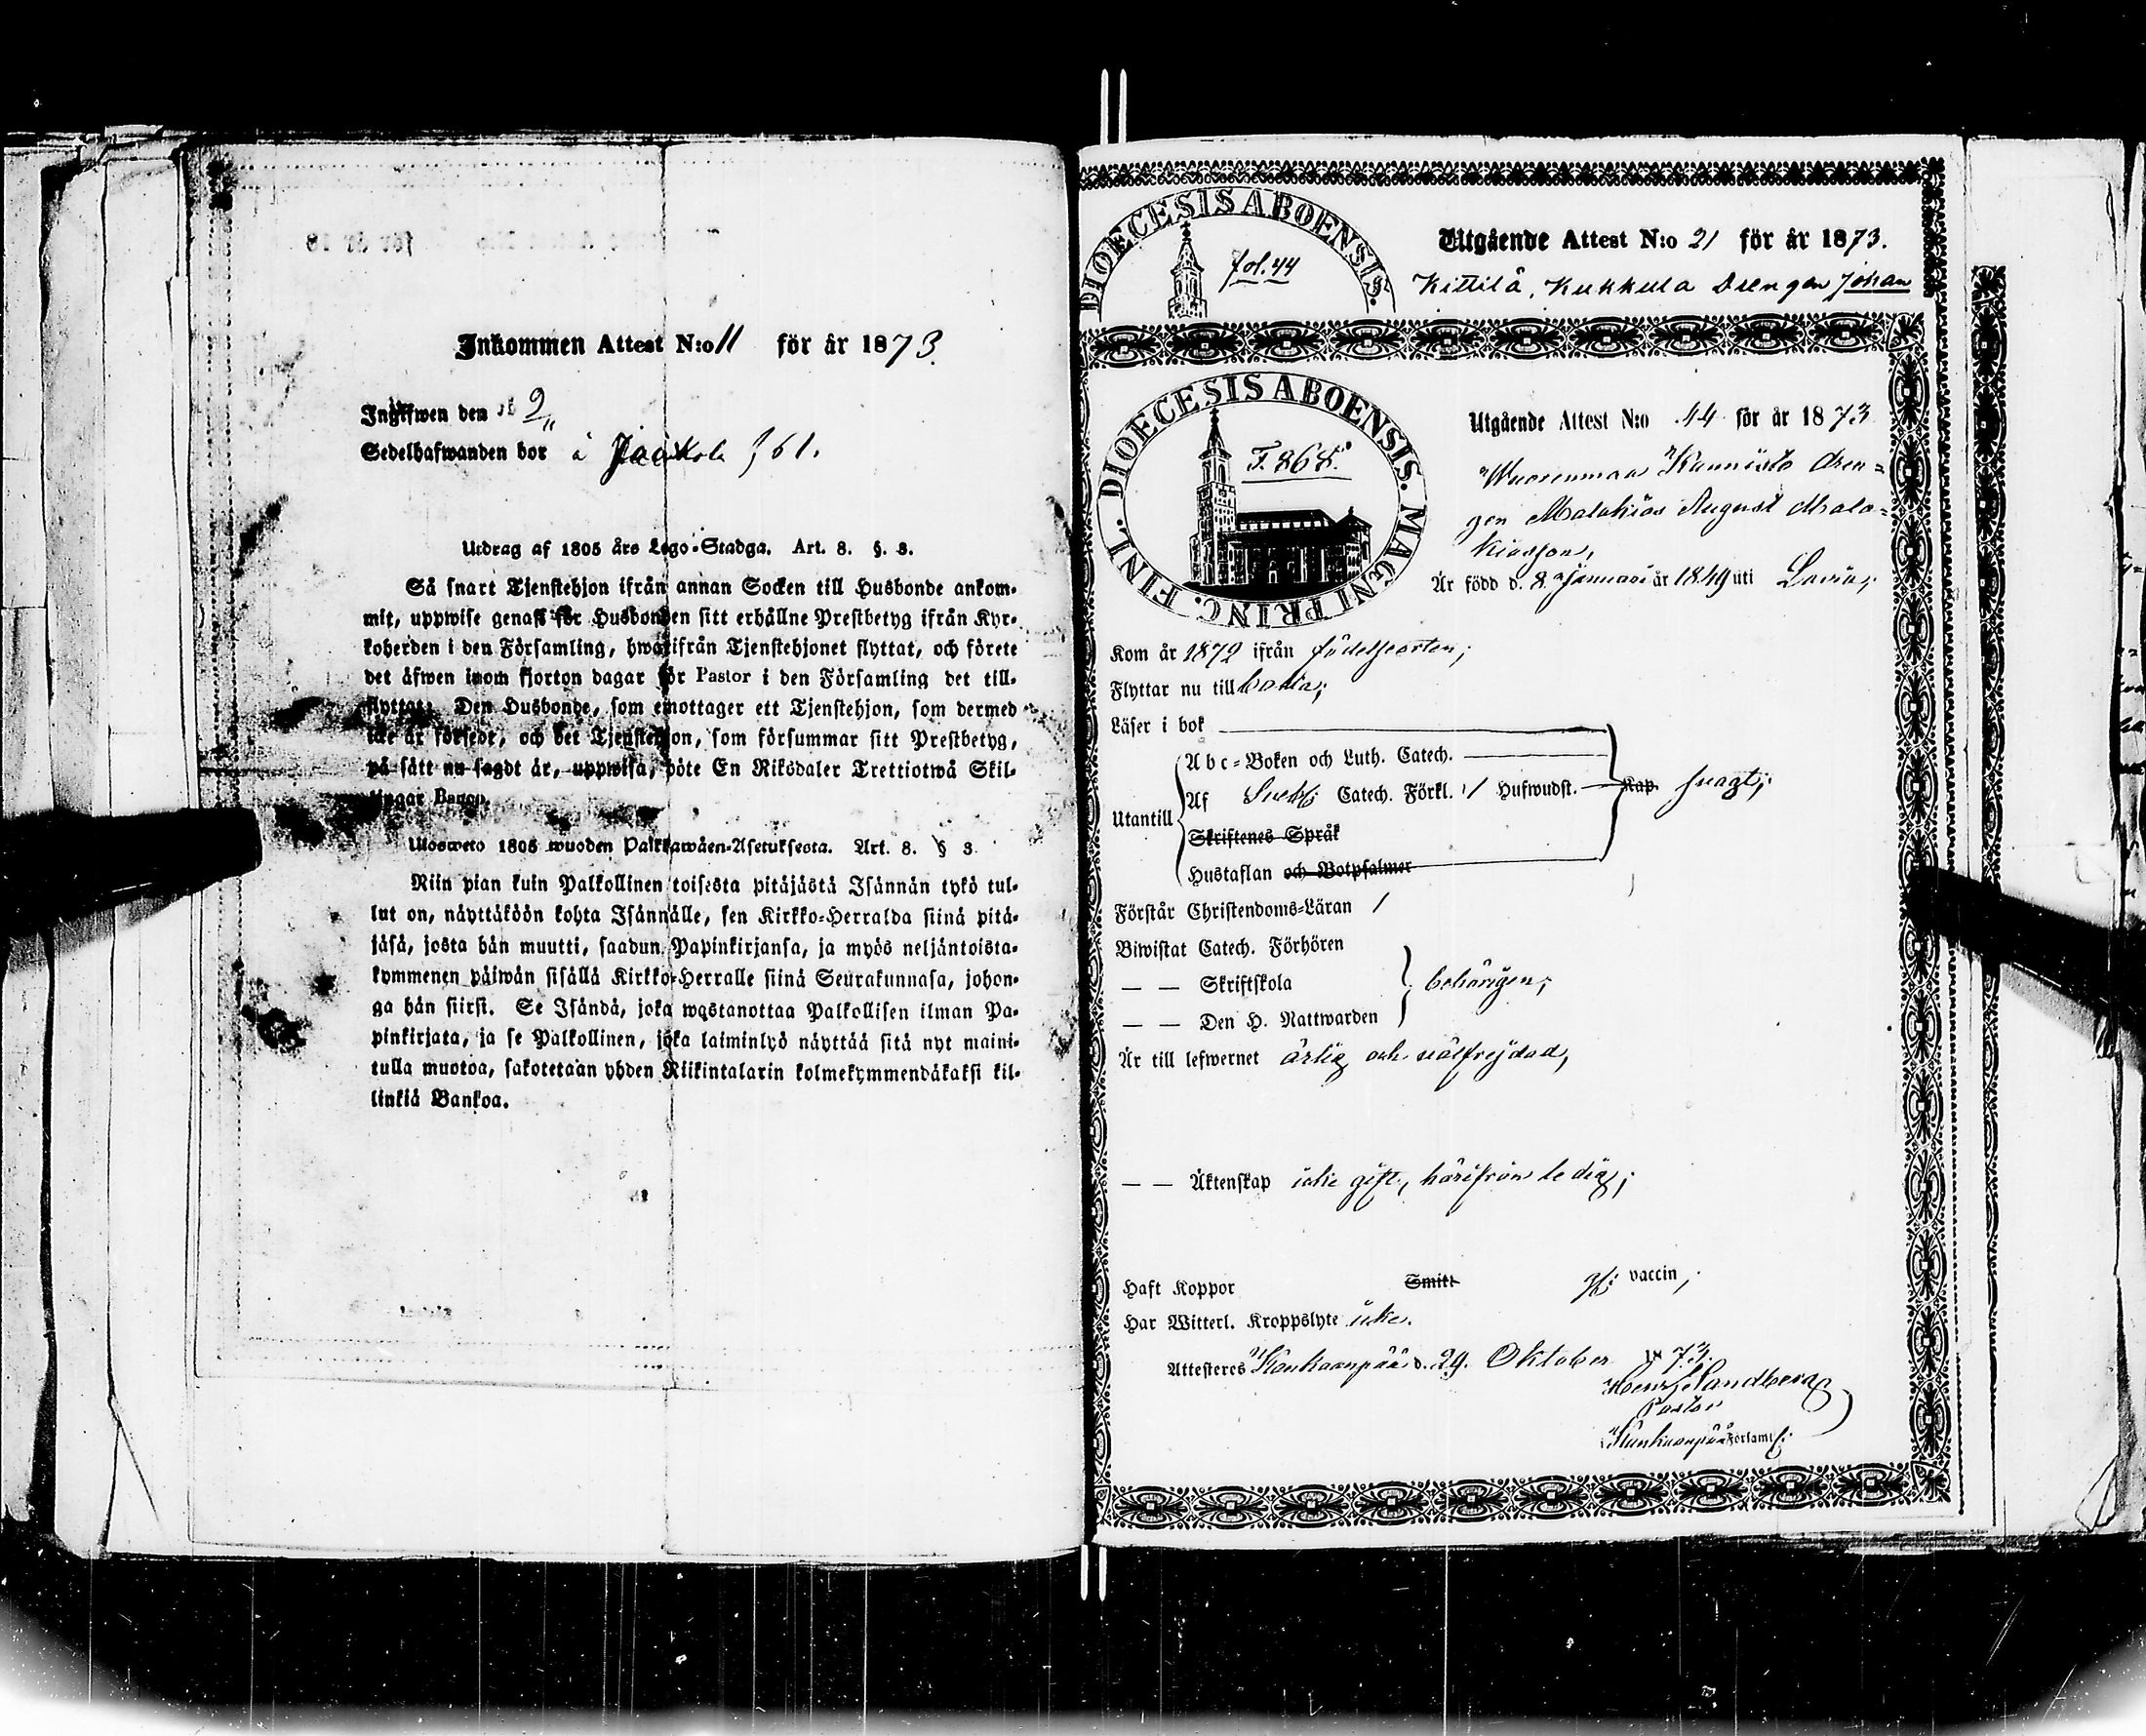 Inkommen Attest N:o 11 för år 1873.
Ingifwen den 9/11
Sedelhafwanden bor å Jaakola f 61.
Utdrag af 1805 års Lego-Stadga. Art. 8. §. 3.
Så snart Tjenstehjon ifrån annan Socken till Husbonde ankom-
mit, uppwise genast för Husbonden sitt erhållne Prestbetyg ifrån Kyr-
koherden i den Församling, hwarifrån Tjenstehjonet flyttat, och förete
det äfwen inom fjorton dagar för Pastor i den Församling det till-
flyttat. Den Husbonde, som emottager ett Tjenstehjon, som dermed
icke är försedt, och det Tjenstehjon, som försummar sitt Prestbetyg,
på sätt nu sagdt är, uppwisa, böte En Riksdaler Trettiotwå Skil-
lingar Banco.
Ulosweto 1805 wuoden Palkkawäen-Asetuksesta. Art. 8. § 3.
Niin pian kuin Palkollinen toisesta pitäjästä Isännän tykö tul-
lut on, näyttäköön kohta Isännälle, sen Kirkko-Herralda siinä pitä-
jäsä, josta hän muutti, saadun Papinkirjansa, ja myös neljäntoista-
kymmenen päiwän sisällä Kirkko-Herralle siinä Seurakunnasa, johon-
ga hän siirst. Se Isändä, joka wastanottaa Palkollisen ilman Pa-
pinkirjata, ja se Palkollinen, joka laiminlyö näyttää sitä nyt maini-
tulla muotoa, sakotetaan yhden Riikintalarin kolmekymmendäkaksi kil-
linkiä Bankoa.
DIOECESIS ABOENSIS.
fol. 44
Utgående Attest N:o 21 för år 1873.
Kittilä, Kukkula Drengen Johan
DIOECESIS ABOENSIS. MAGNI PRINC. FINL.
F. 868.
Utgående Attest N:o 44 för år 1873
Kannisto dren-
gen Malakias August Mala-
kiasson,
Är född d. 8 Januari år 1849 uti Lavia;
Kom år 1872 ifrån födelseorten;
Flyttar nu till Lavia;
Läser i bok
Abc-Boken och Luth. Catech.
Utantill
Af Catech. Förkl. 1 Hufwudst. Kap. svagt;
Skriftenes Språk
Hustaflan och Botpsalmer
Förstår Christendoms-Läran /
Biwistat Catech. Förhören
— — Skriftskola behörigen;
— — Den H. Nattwarden
Är till lefwernet ärlig och välfrejdad,
— — Äktenskap icke gift, härifrån ledig;
Haft Koppor Smitt vaccin;
Har Witterl. Kroppslyte icke.
Attesteres Kankaanpää d. 29. Oktober 1873.
Sandberg
Pastor
Kankaanpää Församl: